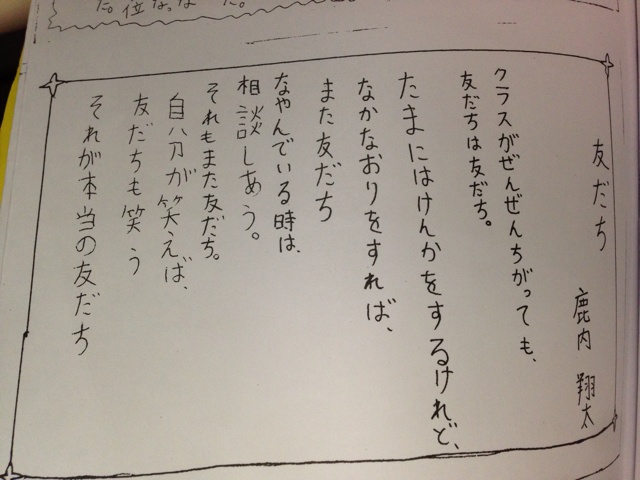 た。位な。な　た。
友だち
鹿内 翔太
クラスがぜんぜんちがっても、
友だちは友だち。
たまにはけんかをするけれど、
なかなおりをすれば、
また友だち
なやんでいる時は、
相談しあう。
それもまた友だち。
自分が笑えば、
友だちも笑う
それが本当の友だち